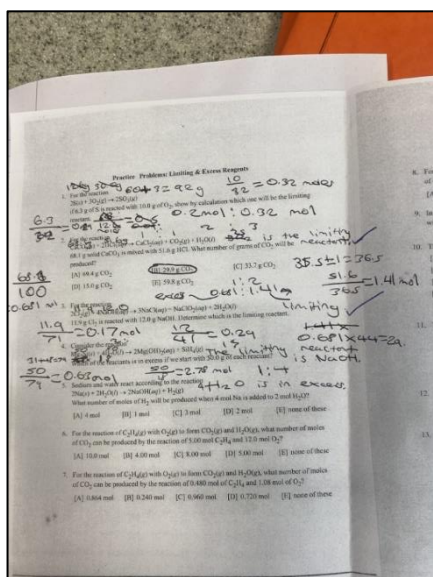 Practice Problems: Limiting & Excess Reagents
1. For the reaction
2S(s) + 3O₂(g) → 2SO₃(g)
if 6.3 g of S is reacted with 10.0 g of O₂, show by calculation which one will be the limiting
reactant.
10/32 = 0.32 moles
0.2mol : 0.32 mol
2 : 3
is the limiting
reactant
68.1 g solid CaCO₃ is mixed with 51.6 g HCl. What number of grams of CO₂ will be
produced?
[A] 89.4 g CO₂ [B] 29.9 g CO₂ [C] 33.7 g CO₂
[D] 15.0 g CO₂ [E] 59.8 g CO₂
35.5+1=36.5
51.6/36.5 = 1.41 mol
68.1/100
0.681 mol
1:2
0.681:1.41
limiting
0.681x44=29.
11.9 g Cl₂ is reacted with 12.0 g NaOH. Determine which is the limiting reactant.
11.9/71 = 0.17mol
The limiting reactant
is NaOH.
of the reactants is in excess if we start with 50.0 g of each reactant?
= 0.63mol
= 2.78 mol 1:4
4H₂O is in excess.
5. Sodium and water react according to the reaction
2Na(s) + 2H₂O(l) → 2NaOH(aq) + H₂(g)
What number of moles of H₂ will be produced when 4 mol Na is added to 2 mol H₂O?
[A] 4 mol [B] 1 mol [C] 3 mol [D] 2 mol [E] none of these
6. For the reaction of C₂H₄(g) with O₂(g) to form CO₂(g) and H₂O(g), what number of moles
of CO₂ can be produced by the reaction of 5.00 mol C₂H₄ and 12.0 mol O₂?
[A] 10.0 mol [B] 4.00 mol [C] 8.00 mol [D] 5.00 mol [E] none of these
7. For the reaction of C₂H₄(g) with O₂(g) to form CO₂(g) and H₂O(g), what number of moles
of CO₂ can be produced by the reaction of 0.480 mol of C₂H₄ and 1.08 mol of O₂?
[A] 0.864 mol [B] 0.240 mol [C] 0.960 mol [D] 0.720 mol [E] none of these
8. For
of
9. In
10.
11.
12.
13.